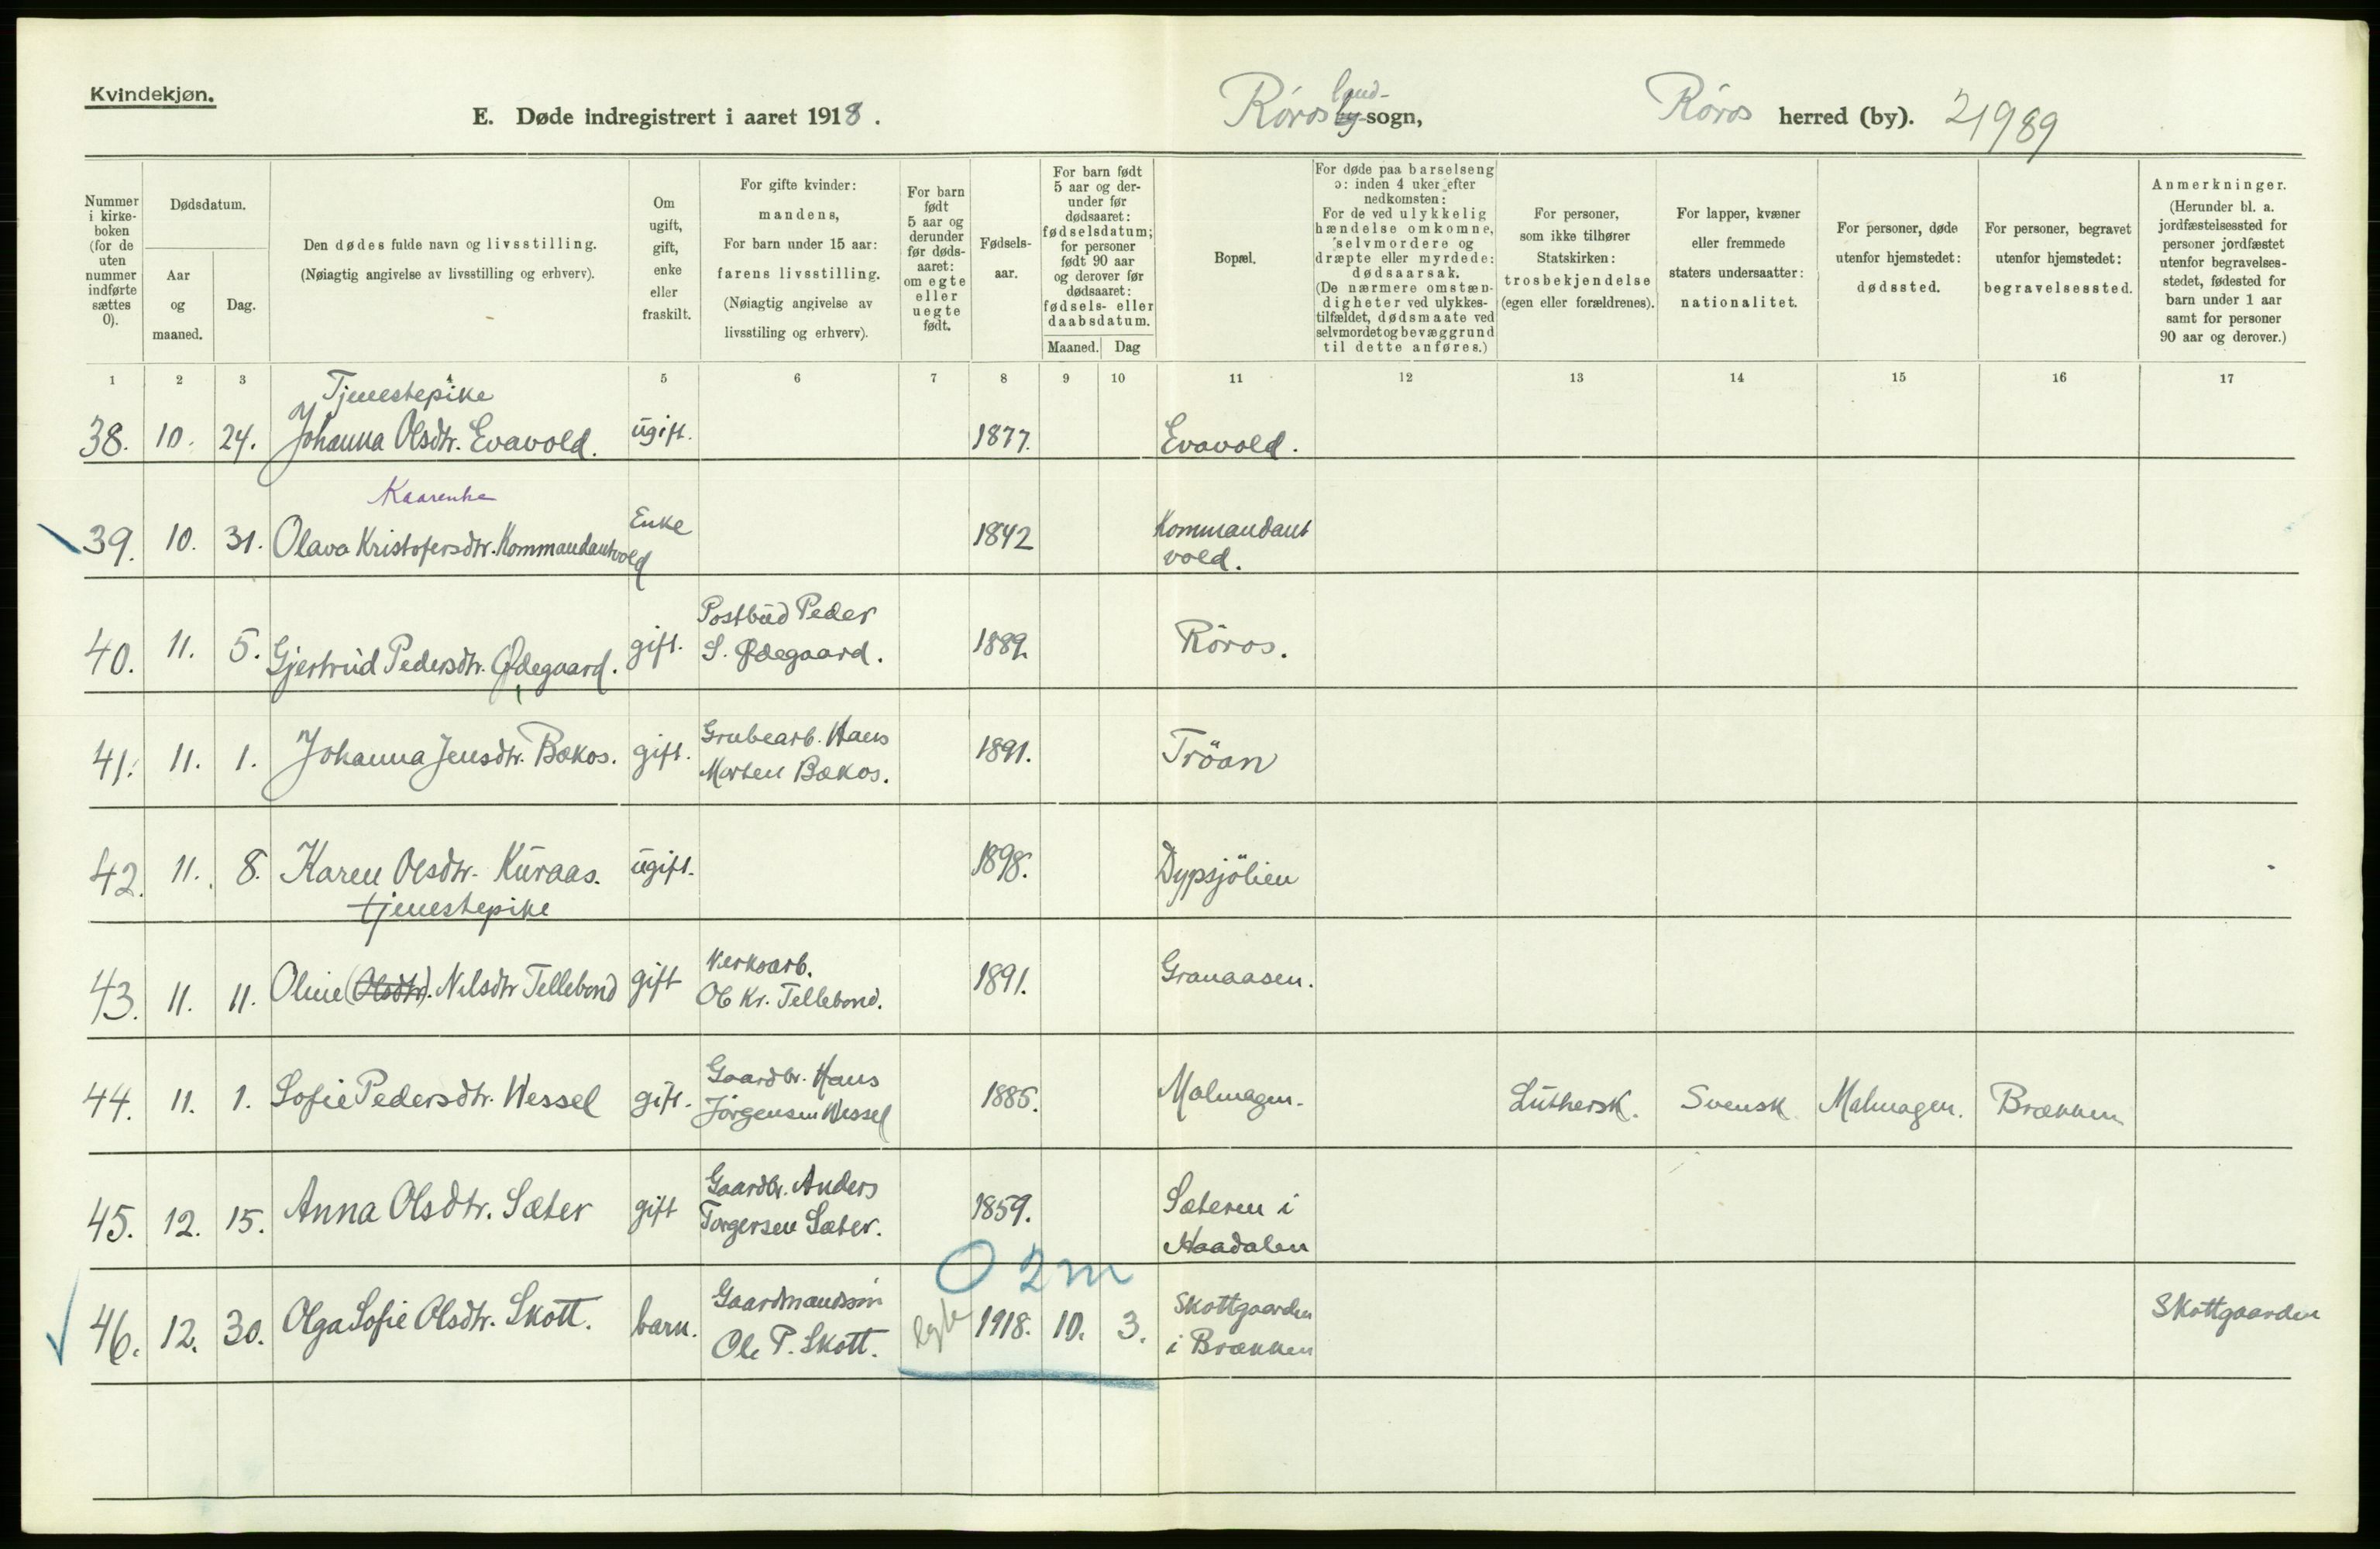 Kvindekjøn.
E. Døde indregistrert i aaret 1918.
Röros by-sogn,
land-
Röros herred (by). 21989
Nummer i kirke-boken (for de uten nummer indførte sættes 0).
Dødsdatum.
Aar og maaned.
Dag.
Den dødes fulde navn og livsstilling.
(Nøiagtig angivelse av livsstilling og erhverv).
Om ugift, gift, enke eller fraskilt.
For gifte kvinder: mandens,
For barn under 15 aar: farens livsstilling.
(Nøiagtig angivelse av livsstiling og erhverv).
For barn født 5 aar og derunder før døds-aaret: om egte eller uegte født.
Fødsels-aar.
For barn født 5 aar og der-under før dødsaaret: fødselsdatum; for personer født 90 aar og derover før dødsaaret: fødsels- eller daabsdatum.
Maaned. Dag
Bopæl.
For døde paa barselseng ɔ: inden 4 uker efter nedkomsten:
For de ved ulykkelig hændelse omkomne, selvmordere og dræpte eller myrdede: dødsaarsak.
(De nærmere omstæn-digheter ved ulykkes-tilfældet, dødsmaate ved selvmordet og bevæggrund til dette anføres.)
For personer, som ikke tilhører Statskirken: trosbekjendelse (egen eller forældrenes).
For lapper, kvæner eller fremmede staters undersaatter: nationalitet.
For personer, døde utenfor hjemstedet: dødssted.
For personer, begravet utenfor hjemstedet: begravelsessted.
Anmerkninger.
(Herunder bl. a. jordfæstelsessted for personer jordfæstet utenfor begravelses-stedet, fødested for barn under 1 aar samt for personer 90 aar og derover.)
1 2 3 4 5 6 7 8 9 10 11 12 13 14 15 16 17
Tjenestepike
38. 10. 24. Johanna Olsdtr. Evavold. ugift. 1877. Evavold.
39. 10. 31. Olava Kristofersdtr. Kommandantvold Enke 1842 Kommandant
vold.
40. 11. 5. Gjertrud Pedersdtr. Ødegaard. gift. Postbud Peder
S. Ødegaard. 1889. Röros.
41. 11. 1. Johanna Jensdtr. Bakos. gift. Grubearb. Hans
Morten Bakos. 1891. Tröan
42. 11. 8. Karen Olsdtr. Kuraas. ugift. 1898. Dypsjölien
tjenestepike
43. 11. 11. Oline (Olsdtr). Nilsdtr Tellebond gift Verksarb.
Ole Kr. Tellebond. 1891. Granaasen.
44. 11. 1. Sofie Pedersdtr. Wessel gift. Gaardbr. Hans
Jörgensen Wessel 1885. Malmagen. Luthersk. Svensk Malmagen. Brækken
45. 12. 15. Anna Olsdtr. Sæter gift Gaardbr. Anders
Torgersen Sæter. 1859. Sæteren i
Haadalen
0 2m
46. 12. 30. Olga Sofie Olsdtr. Skott. barn. Gaardmandssön
Ole P. Skott. egte 1918. 10. 3. Skottgaarden
i Brækken Skottgaarden